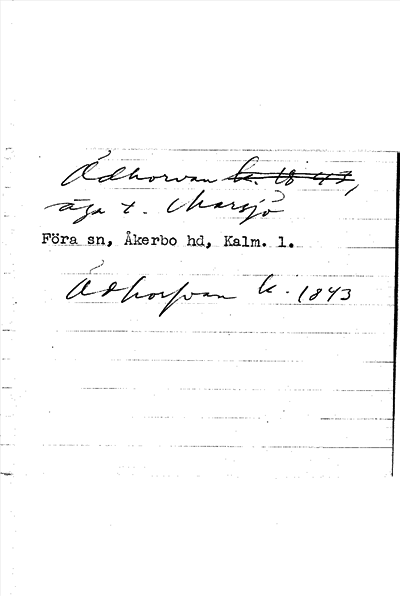 Ådhorvan ~~k. 1843~~,
äga t. Marsjö
Föra sn, Åkerbo hd, Kalm. l.
Ådhorfvan k. 1843